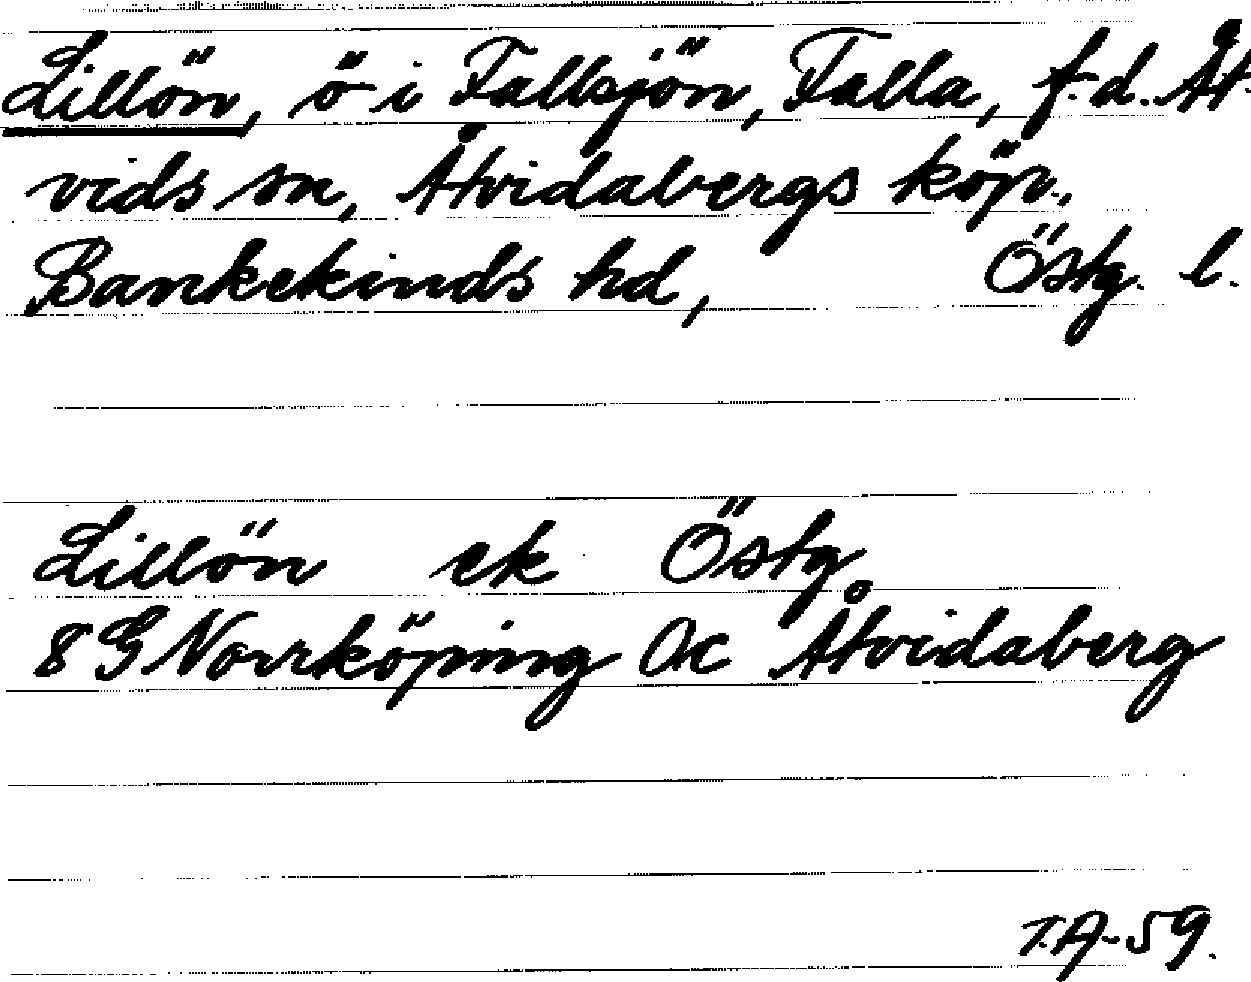 Lillön, ö i Fallsjön, Falla, f.d. Åt-
vids sn, Åtvidabergs köp.,
Bankekinds hd, Östg. l.
Lillön ek Östg
8 G Norrköping Öc Åtvidaberg
T.A-59.